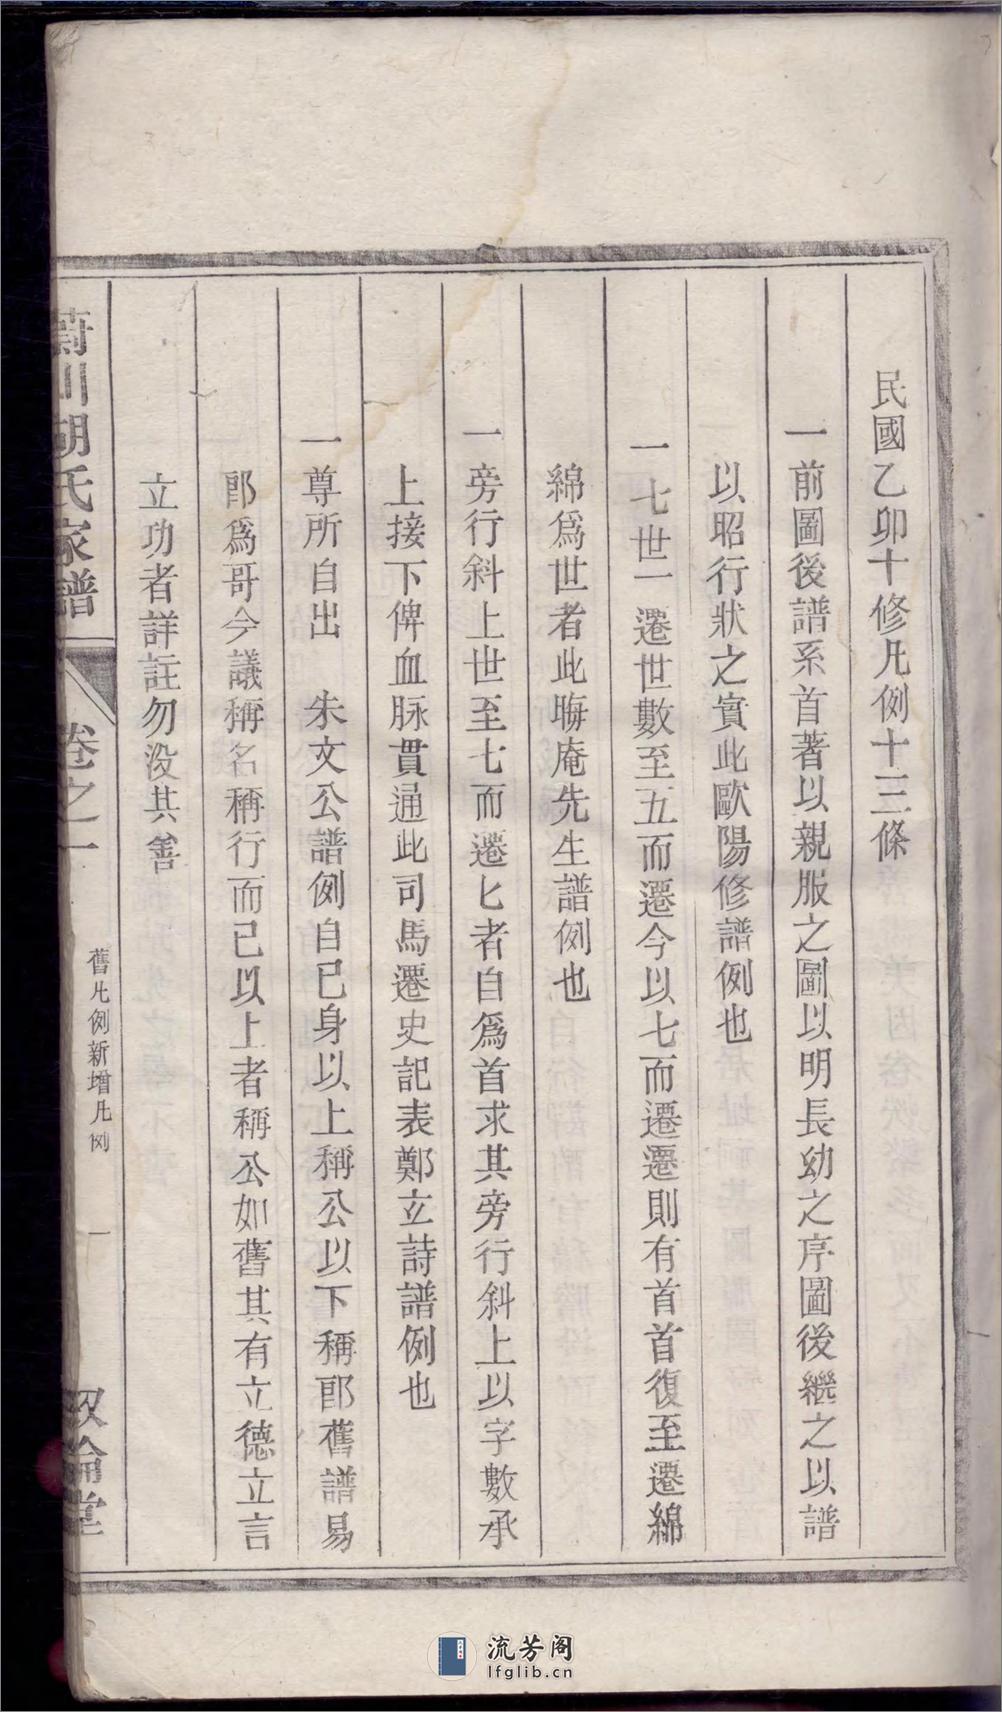 民國乙卯十修凡例十三條
一前圖後譜系首著以親服之圖以明長幼之序圖後繼之以譜
以昭行狀之實此歐陽修譜例也
一七世一遷世數至五而遷今以七而遷遷則有首首復至遷綿
綿爲世者此晦庵先生譜例也
一旁行斜上世至七而遷匕者自爲首求其旁行斜上以字數承
上接下俾血脉貫通此司馬遷史記表鄭立詩譜例也
一尊所自出　朱文公譜例自已身以上稱公以下稱郎舊譜易
郎爲哥今議稱名稱行而已以上者稱公如舊其有立德立言
立功者詳註勿没其善
蔚川胡氏家譜
卷之一
舊凡例新增凡例
一
敘倫堂
流芳阁
lfglib.cn